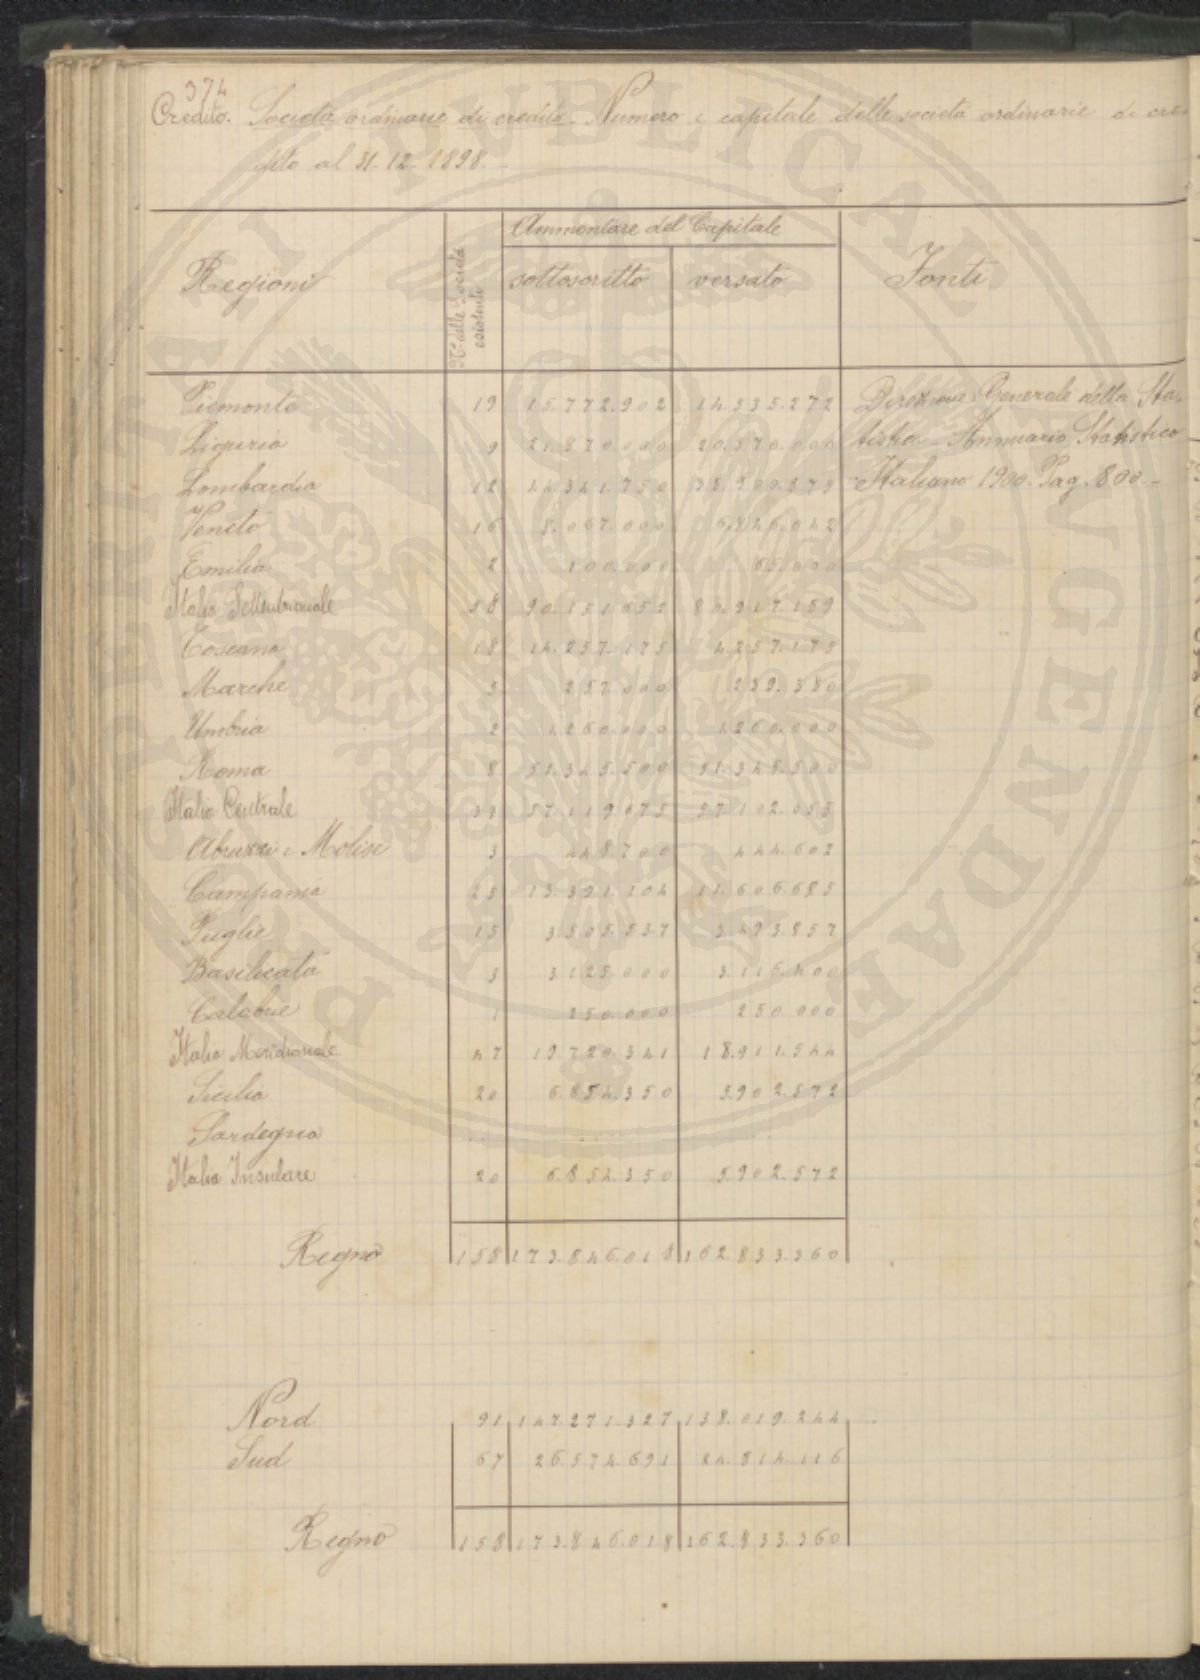 374
Credito. Società ordinarie di credito - Numero e capitale delle società ordinarie di cre-
dito al 31-12-1898.-
Regioni
N° delle Società esistenti
Ammontare del Capitale
sottoscritto versato
Fonti
Piemonte 19 15.772.902 14.535.272 Direzione Generale della Sta-
Liguria 9 21.870.000 20.570.000 tistica - Annuario Statistico
Lombardia 12 44.341.750 38.900.875 Italiano 1900. Pag. 800.-
Veneto 16 8.067.000 6.846.042
Emilia 2 100.000 65.000
Italia Settentrionale 58 90.151.652 80.917.189
Toscana 18 14.257.175 4.257.175
Marche 5 257.000 239.380
Umbria 2 1.260.000 1.260.000
Roma 8 51.345.500 51.345.500
Italia Centrale 33 57.119.675 57.102.055
Abruzzi e Molise 3 448.700 444.602
Campania 25 13.391.104 11.606.685
Puglie 15 3.505.537 3.493.857
Basilicata 3 3.125.000 3.116.400
Calabrie 1 250.000 250.000
Italia Meridionale 47 19.720.341 18.911.544
Sicilia 20 6.854.350 5.902.572
Sardegna
Italia Insulare 20 6.854.350 5.902.572
Regno 158 173.846.018 162.833.360
Nord 91 147.271.327 138.019.244
Sud 67 26.574.691 24.814.116
Regno 158 173.846.018 162.833.360
PERITIA PUBLICAE AUGENDAE PROSPERITATI